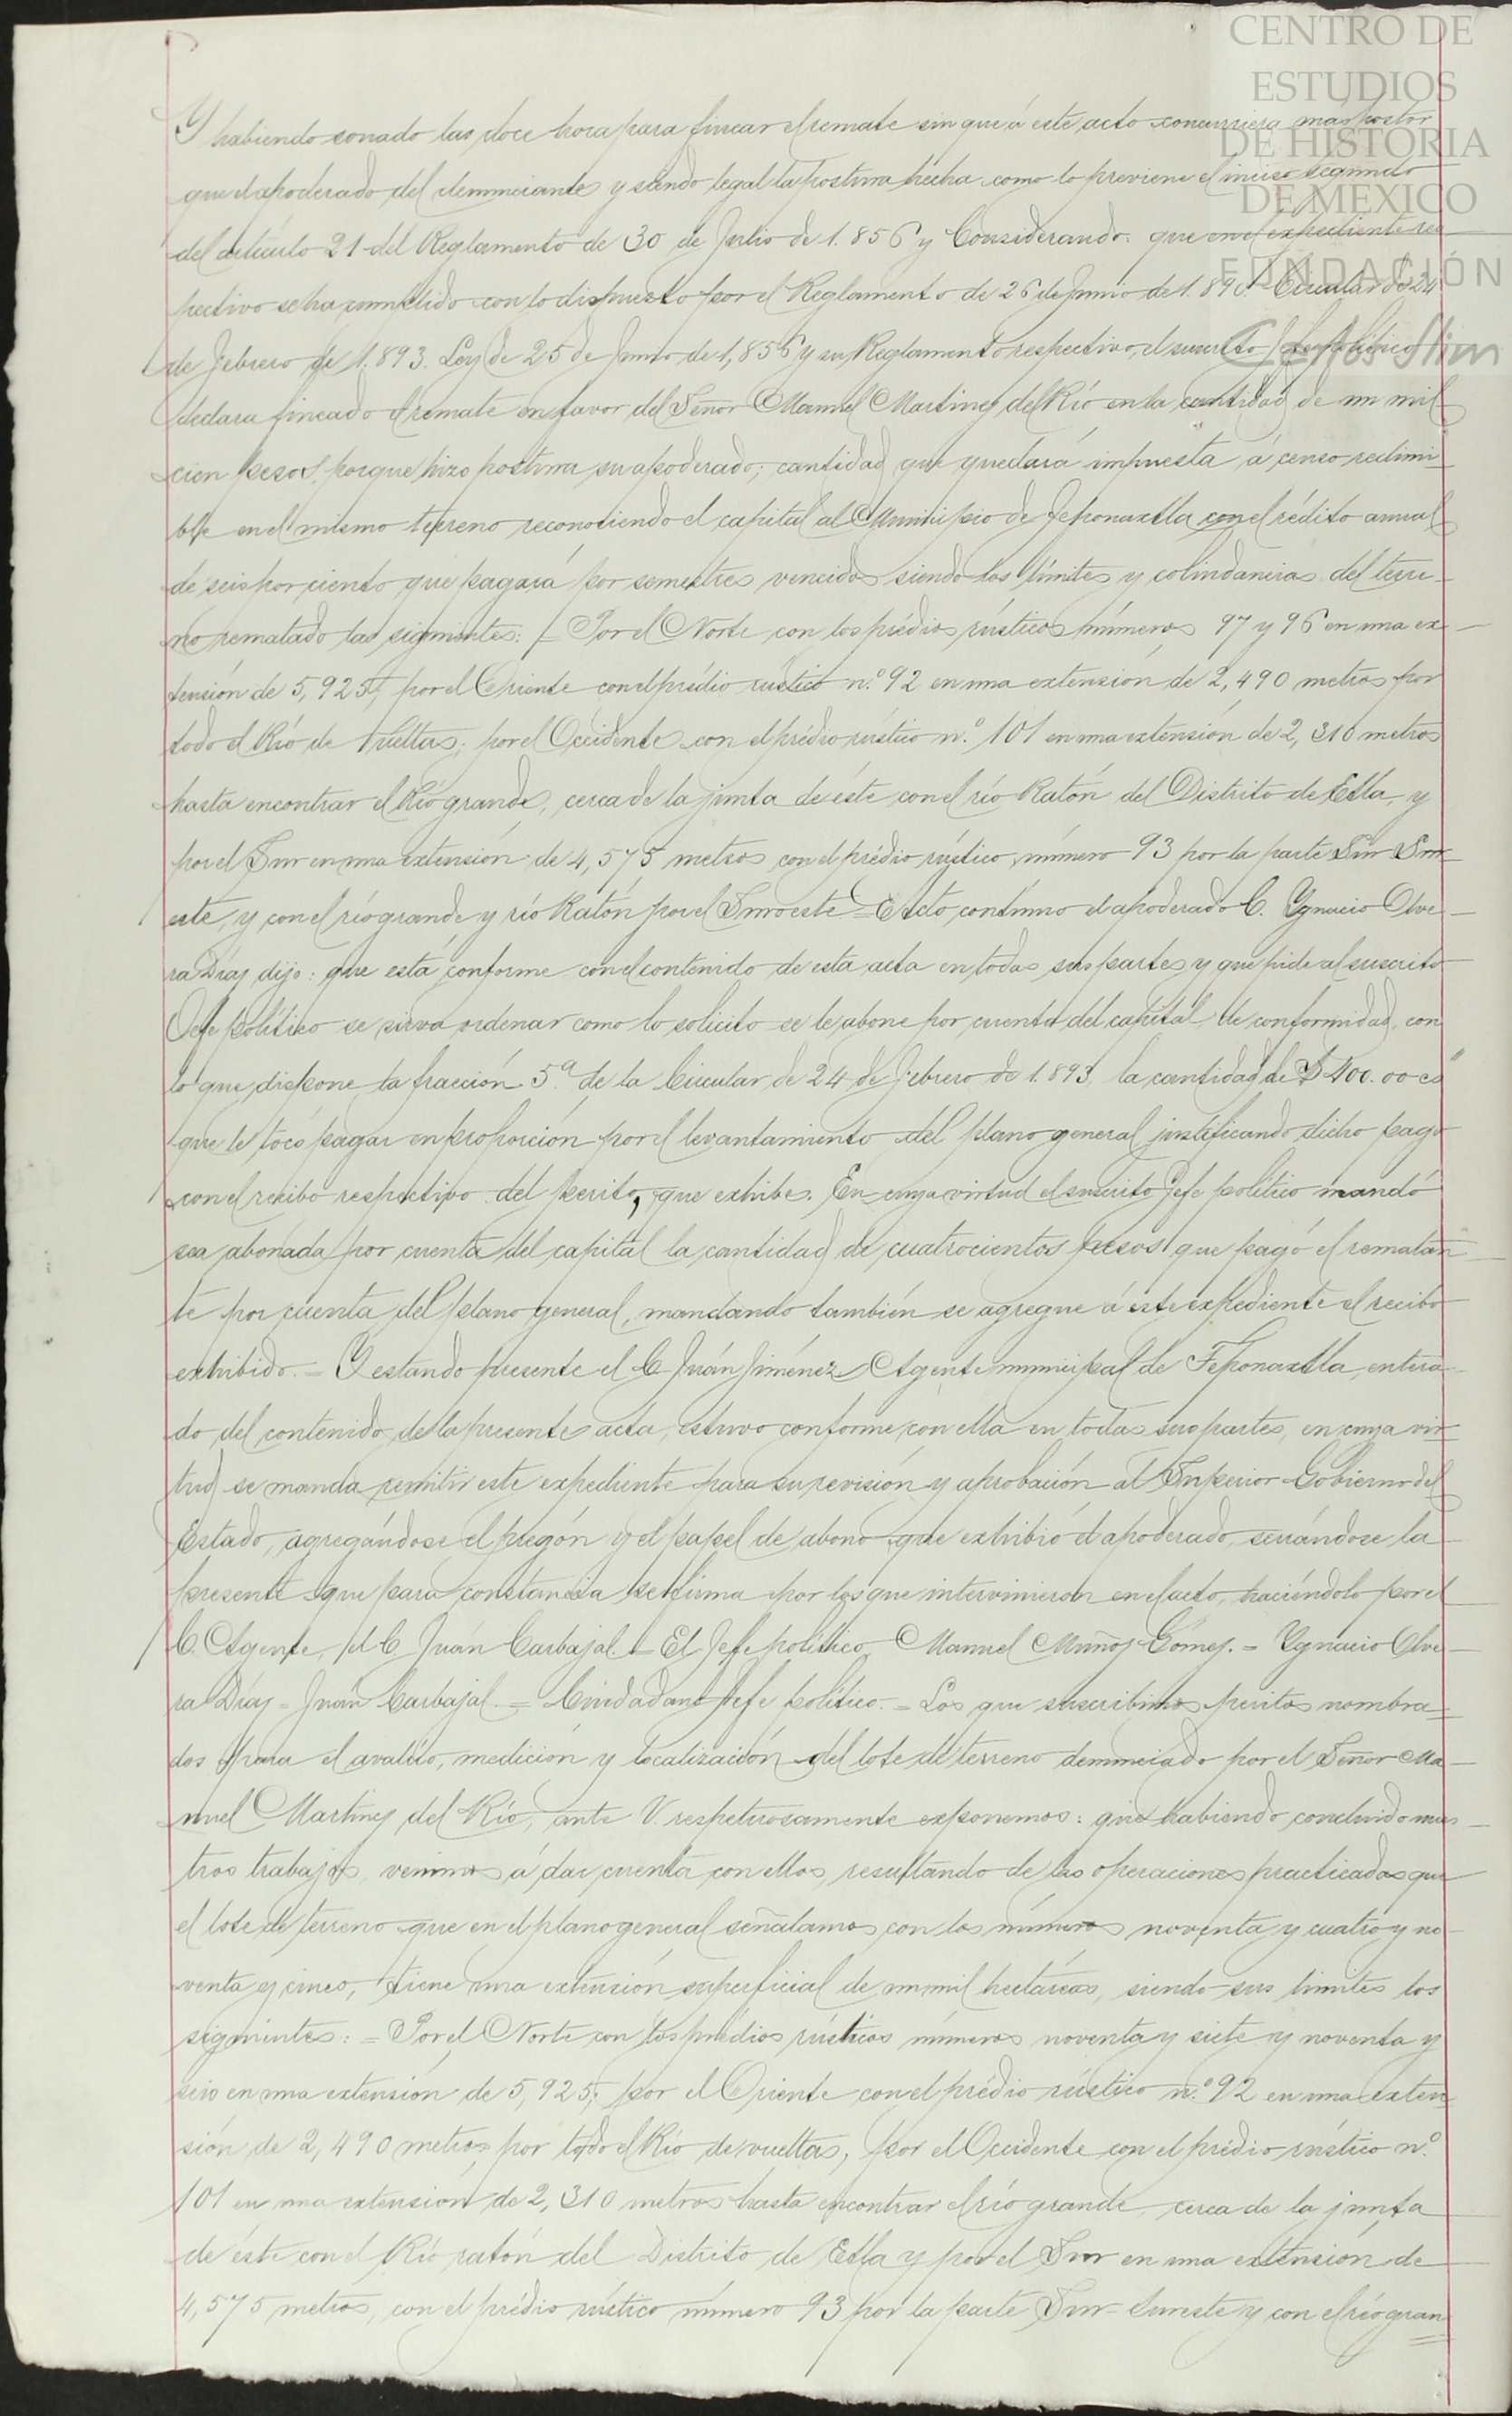 CENTRO DE
ESTUDIOS
DE HISTORIA
DE MEXICO
FUNDACIÓN
Carlos Slim
Y habiendo sonado las doce hora para fincar el remate sin que á este acto concurriera mas postor
que el apoderado del denunciante y siendo legal la postura hecha como lo previene el inciso segundo
del artículo 21 del Reglamento de 30 de Julio de 1.856 y Considerando: que en el expediente res
pectivo se ha cumplido con lo dispuesto por el Reglamento de 26 de Junio de 1.890. Circular de 24
de Febrero de 1.893. Ley de 25 de Junio de 1,856 y su Reglamento respectivo, el suscrito Jefe político
declara fincado el remate en favor del Señor Manuel Martinez del Río en la cantidad de un mil
cien pesos, porque hizo postura su apoderado; cantidad que quedará impuesta á censo redimi-
ble en el mismo terreno reconociendo el capital al Municipio de Teponaxtla con el rédito anual
de seis por ciento que pagará por semestres vencidos siendo los límites y colindancias del terre-
no rematado las siguientes: = Por el Norte con los prédios rústicos números 97 y 96 en una ex-
tensión de 5,925; por el Oriente con el prédio rústico n.º 92 en una extensión de 2,490 metros por
todo el Río de Vueltas; por el Occidente con el prédio rústico n.º 101 en una extensión de 2,310 metros
hasta encontrar el Río grande, cerca de la junta de éste con el río Ratón del Distrito de Etla, y
por el Sur en una extensión de 4,575 metros con el prédio rústico número 93 por la parte Sur Sur
este, y con el río grande y río Ratón por el Suroeste = Acto continuo el apoderado C. Ygnacio Olve-
ra Díaz dijo: que está conforme con el contenido de esta acta en todas sus partes y que pide al suscrito
Jefe político se sirva ordenar como lo solicito se le abone por cuenta del capital, de conformidad con
lo que dispone la fracción 5.ª de la Circular de 24 de Febrero de 1.893, la cantidad de $400.00 cs
que le tocó pagar en proporción por el levantamiento del plano general justificando dicho pago
con el recibo respectivo del perito, que exhibe. En cuya virtud el suscrito Jefe político mandó
sea abonada por cuenta del capital la cantidad de cuatrocientos pesos que pagó el rematan
te por cuenta del plano general, mandando también se agregue á este expediente el recibo
exhibido. = Y estando presente el C Juán Jiménez Agente municipal de Teponaxtla, entera-
do del contenido de la presente acta, estuvo conforme con ella en todas sus partes, en cuya vir
tud se manda remitir este expediente para su revisión y aprobación al Superior Gobierno del
Estado, agregándose el pregón y el papel de abono que exhibió el apoderado, cerrándose la
presente que para constancia se firma por los que intervinieron en el acto, haciéndolo por el
C. Agente, el C. Juán Carbajal. = El Jefe político, Manuel Muñoz Gómez. = Ygnacio Olve-
ra Díaz = Juán Carbajal. = Ciudadano Jefe político. = Los que suscribimos peritos nombra=
dos para el avalúo, medición y localización del lote de terreno denunciado por el Señor Ma-
nuel Martinez del Río, ante V. respetuosamente exponemos: que habiendo concluido nues
tros trabajos, venimos á dar cuenta con ellos, resultando de las operaciones practicadas que
el lote de terreno que en el plano general señalamos con los números noventa y cuatro y no-
venta y cinco, tiene una extensión superficial de un mil hectáreas, siendo sus limites los
siguientes: = Por el Norte con los predios rústicos números noventa y siete y noventa y
seis en una extensión de 5,925; por el Oriente con el prédio rústico n.º 92 en una exten
sión de 2,490 metros por todo el Río de vueltas, por el Occidente con el prédio rústico n.º
101 en una extensión de 2,310 metros hasta encontrar el río grande cerca de la junta
de éste con el Río ratón del Distrito de Etla y por el Sur en una extensión de
4,575 metros, con el prédio rústico número 93 por la parte Sur-Sureste y con el río gran